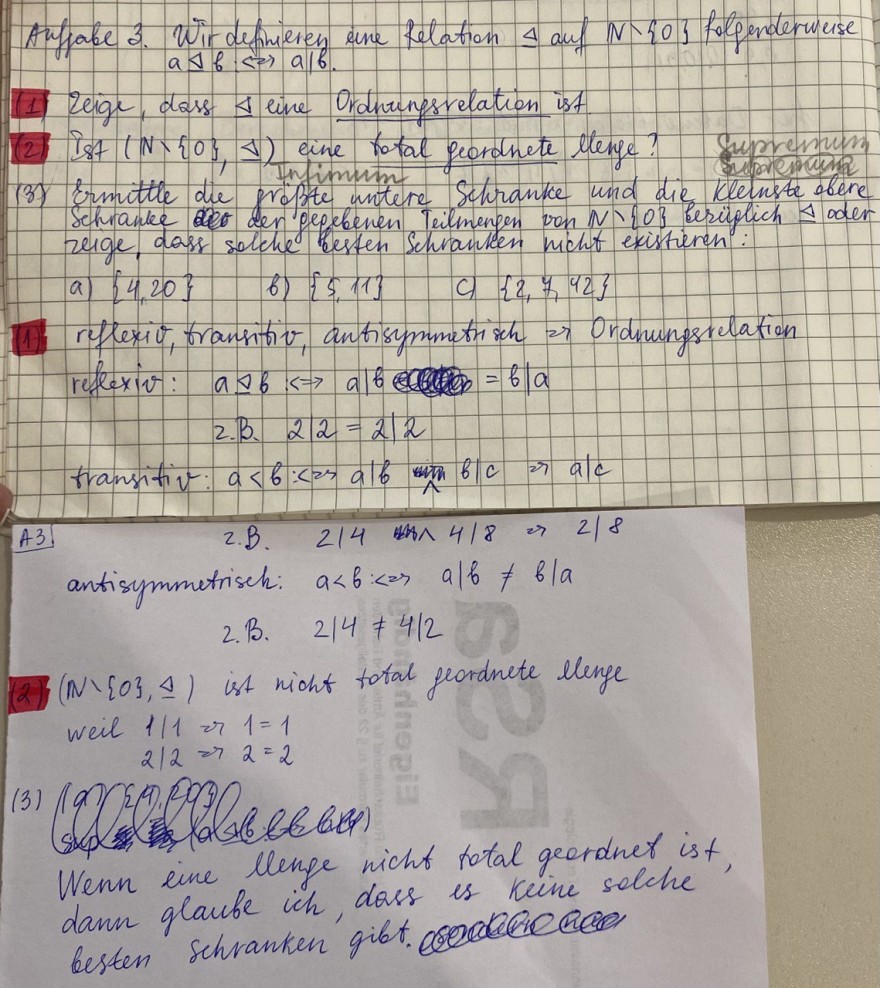 Aufgabe 3. Wir definieren eine Relation ⊴ auf ℕ∖{0} folgenderweise
a ⊴ b :⟺ a|b.
(1) Zeige, dass ⊴ eine Ordnungsrelation ist
(2) Ist (ℕ∖{0}, ⊴) eine total geordnete Menge?
Supremum
Supremum
Infimum
(3) Ermittle die größte untere Schranke und die kleinste obere
Schranke der gegebenen Teilmengen von ℕ∖{0} bezüglich ⊴ oder
zeige, dass solche besten Schranken nicht existieren:
a) {4,20} b) {5,11} c) {2, 7, 42}
(1) reflexiv, transitiv, antisymmetrisch => Ordnungsrelation
reflexiv: a ⊴ b :<=> a|b = b|a
z.B. 2|2 = 2|2
transitiv: a < b :<=> a|b ∧ b|c => a|c
A3
z.B. 2|4 ∧ 4|8 => 2|8
antisymmetrisch: a < b :<=> a|b ≠ b|a
z.B. 2|4 ≠ 4|2
(2) (ℕ∖{0}, ⊴) ist nicht total geordnete Menge
weil 1|1 => 1=1
2|2 => 2=2
(3)
Wenn eine Menge nicht total geordnet ist,
dann glaube ich, dass es keine solche
besten Schranken gibt.
RSa
Eigenhändig